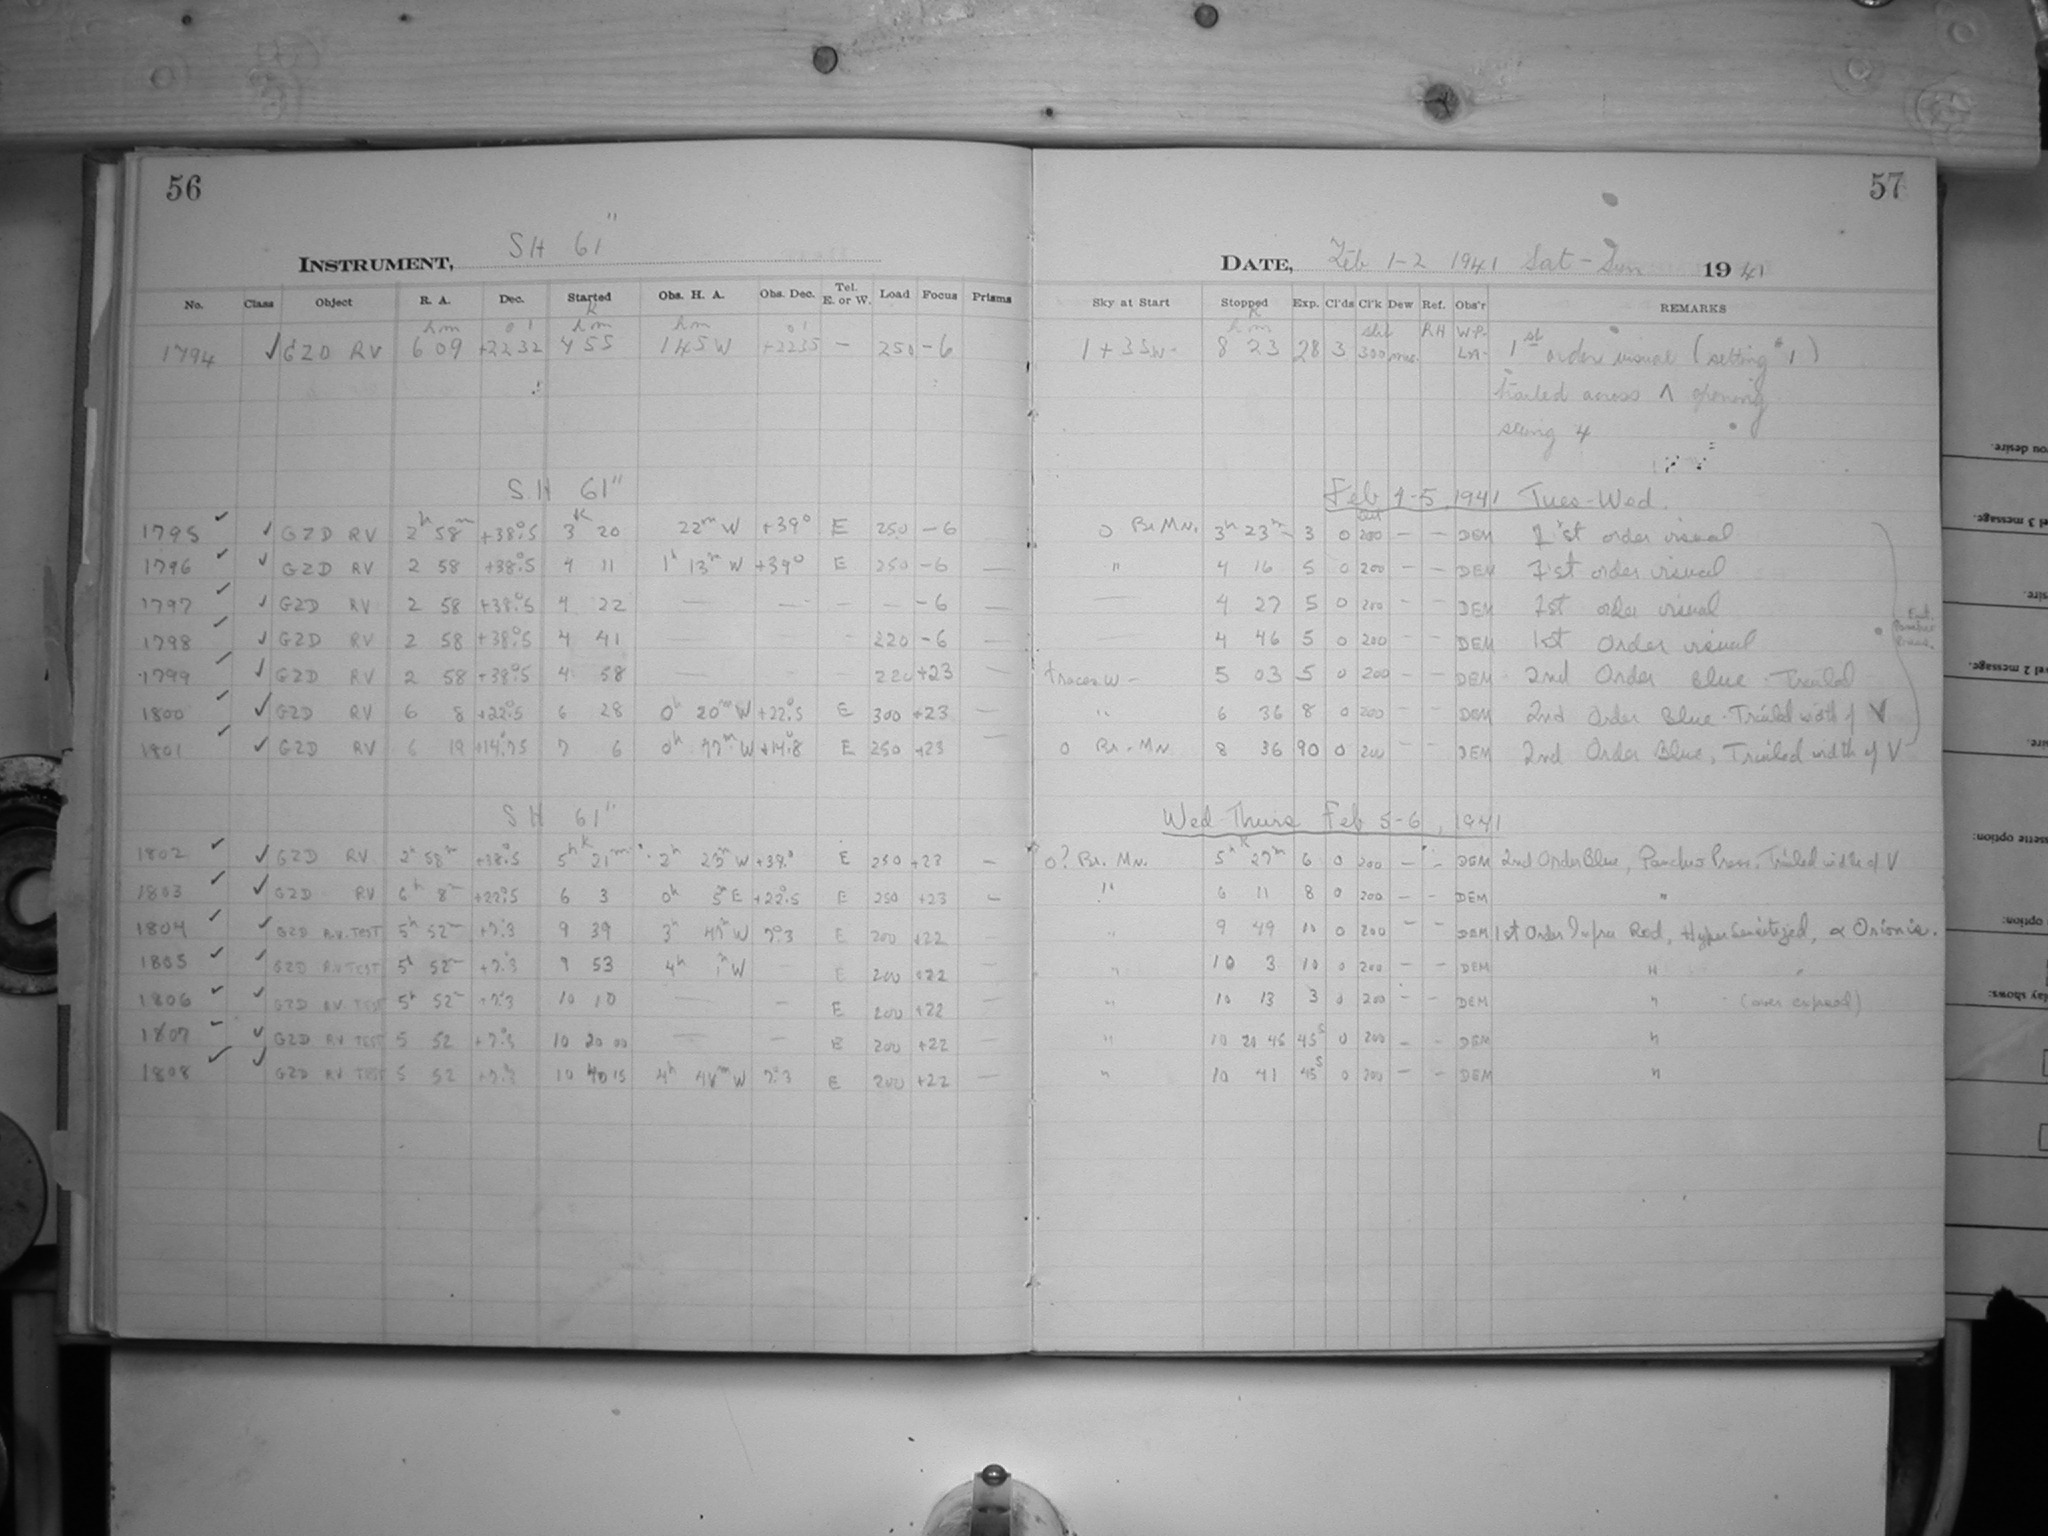 56
INSTRUMENT, SH 61"
No. Class Object R. A. Dec. Started Obs. H. A. Obs. Dec. Tel. E. or W. Load Focus Prisms
h m ° ' h m h m ° '
1794 ✓ GZD RV 6 09 +22 32 4 55 1 45 W +22 35 – 250 -6
SH 61"
1795 ✓ ✓ GZD RV 2h 58m +38°.5 3 20 22m W +39° E 250 -6
1796 ✓ ✓ GZD RV 2 58 +38°.5 4 11 1h 13m W +39° E 250 -6 —
1797 ✓ ✓ GZD RV 2 58 +38°.5 4 22 — — – – -6 —
1798 ✓ ✓ GZD RV 2 58 +38°.5 4 41 — — - 220 -6 —
1799 ✓ ✓ GZD RV 2 58 +38°.5 4 58 — - - 220 +23 —
1800 ✓ ✓ GZD RV 6 8 +22°.5 6 28 0h 20m W +22°.5 E 300 +23 —
1801 ✓ ✓ GZD RV 6 19 +14°.75 7 6 0h W +14°.8 E 250 +23 —
SH 61"
1802 ✓ ✓ GZD RV 2h 58m +38°.5 5h 21m 2h 25m W E 250 +23 —
1803 ✓ ✓ GZD RV 6h 8m +22°.5 6 3 0h 5m E +22°.5 E 250 +23 –
1804 ✓ ✓ GZD R.V. TEST 5h 52m +7°.3 9 39 3h 47m W 7°.3 E 200 +22 —
1805 ✓ ✓ GZD RV TEST 5h 52m +7°.3 9 53 4h 1m W E 200 +22 —
1806 ✓ ✓ GZD RV TEST 5h 52m +7°.3 10 10 — – E 200 +22 —
1807 ✓ ✓ GZD RV TEST 5 52 +7°.3 10 20 00 — – E 200 +22 —
1808 ✓ ✓ GZD RV TEST 5 52 +7°.3 10 40 15 4h 48m W 7°.3 E 200 +22 —
57
DATE, Feb 1-2 1941 Sat - Sun 1941
Sky at Start Stopped Exp. Cl'ds Cl'k Dew Ref. Obs'r REMARKS
h m RH W.P.
1 + 3 SW- 8 23 28 3 300 LM- 1st order visual (setting #1)
trailed across Λ opening
seeing 4
Feb 4-5, 1941 Tues-Wed.
0 Br Mn. 3h 23m 3 0 200 – – DEM 1st order visual
" 4 16 5 0 200 – – DEM 1st order visual
— 4 27 5 0 200 – – DEM 1st order visual
— 4 46 5 0 200 – – DEM 1st Order visual
traces W – 5 03 5 0 200 – – DEM 2nd Order Blue - Trailed
" 6 36 8 0 200 – – DEM 2nd Order Blue - Trailed width of V
0 Br. Mn. 8 36 90 0 200 – – DEM 2nd Order Blue, Trailed width of V
Wed-Thurs Feb 5-6, 1941
0? Br. Mn. 5h 27m 6 0 200 – – DEM 2nd Order Blue, Panchro Press. Trailed width of V
" 6 11 8 0 200 – – DEM "
" 9 49 10 0 200 – – DEM 1st Order Infra Red, Hyper Sensitized, α Orionis.
" 10 3 10 0 200 – – DEM " "
" 10 13 3 0 200 – – DEM " (over exposed)
" 10 20 45 45s 0 200 – – DEM "
" 10 41 45s 0 200 – – DEM "